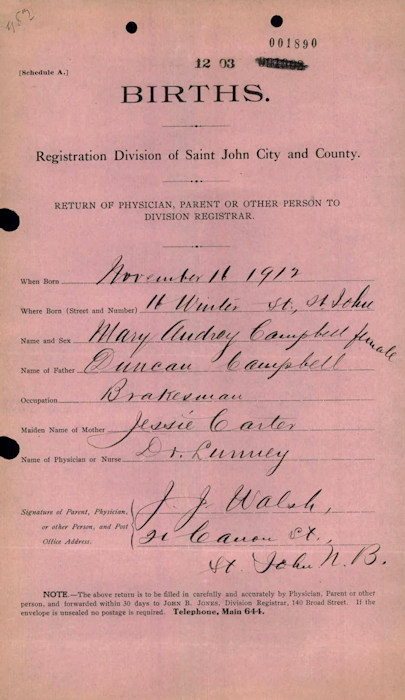 001890
12 03
[Schedule A.]
BIRTHS.
Registration Division of Saint John City and County.
RETURN OF PHYSICIAN, PARENT OR OTHER PERSON TO
DIVISION REGISTRAR.
When Born November 16 1912
Where Born (Street and Number) 16 Winter St., St. John
Name and Sex Mary Audrey Campbell female
Name of Father Duncan Campbell
Occupation Brakesman
Maiden Name of Mother Jessie Carter
Name of Physician or Nurse Dr. Lunney
Signature of Parent, Physician, or other Person, and Post Office Address.
J. J. Walsh,
21 Canon St.,
St. John N. B.
NOTE.—The above return is to be filled in carefully and accurately by Physician, Parent or other
person, and forwarded within 30 days to JOHN B. JONES, Division Registrar, 140 Broad Street. If the
envelope is unsealed no postage is required. Telephone, Main 644.